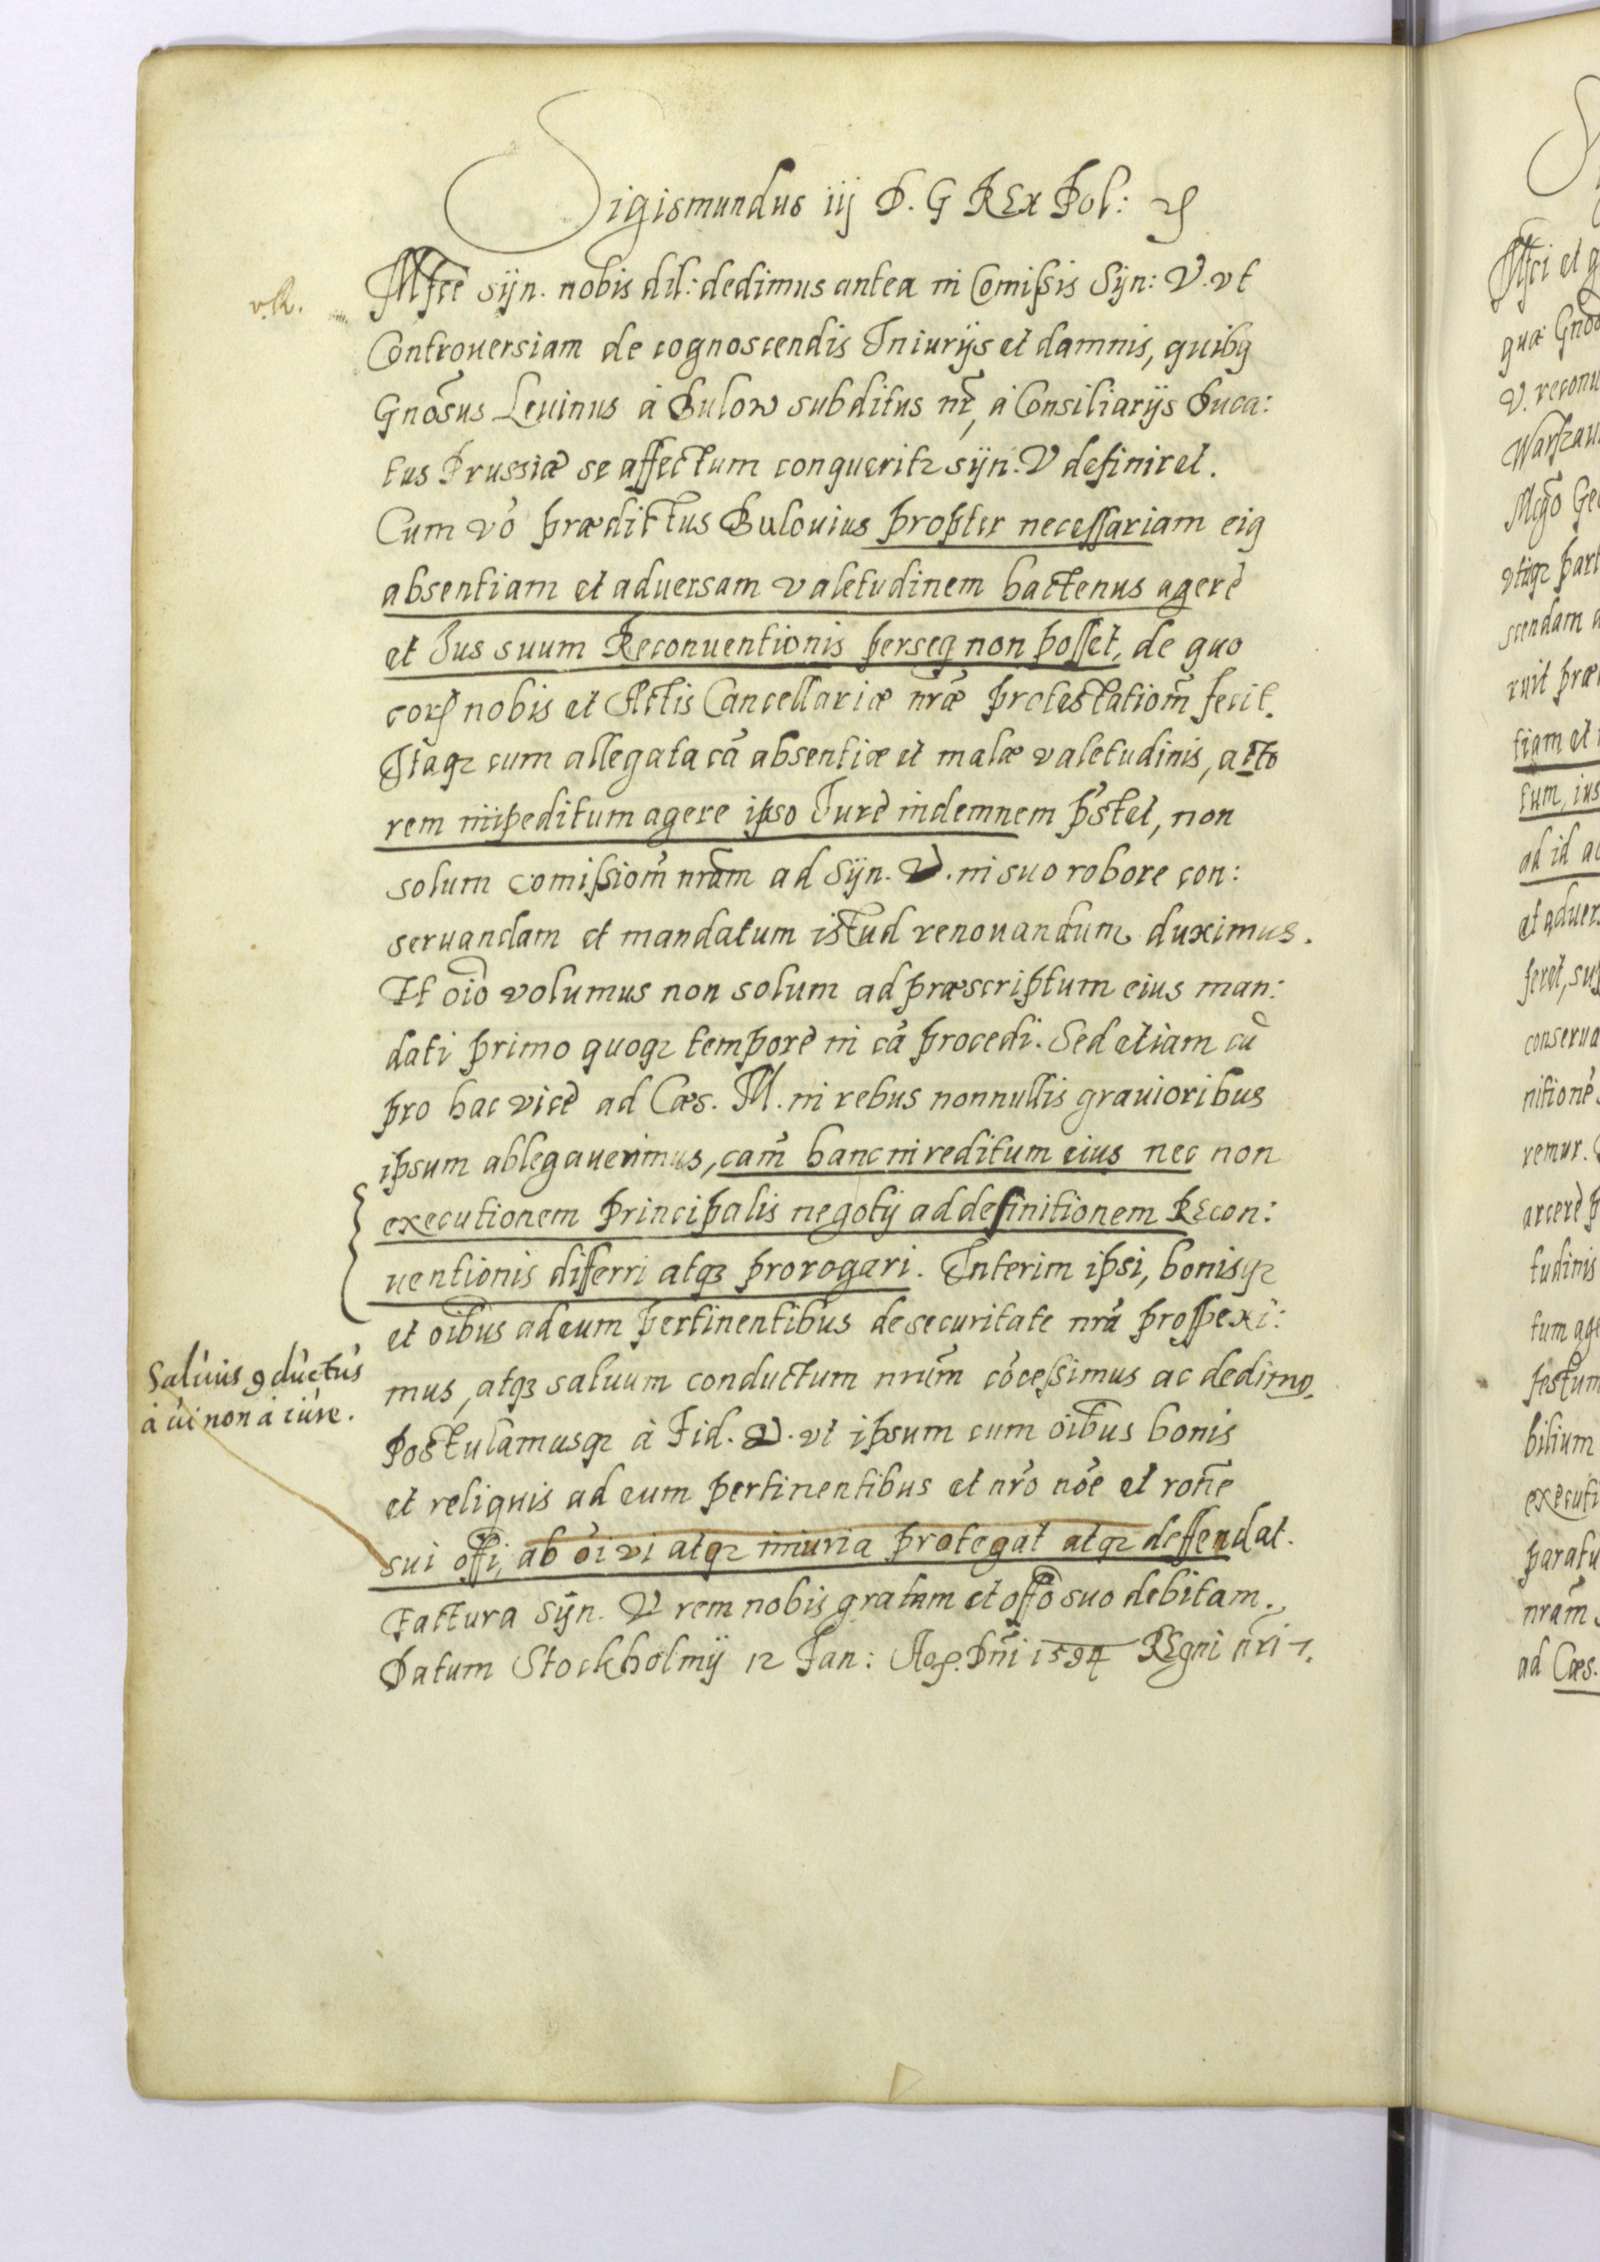 Sigismundus iij D. G REx Pol: ꝛc
v.R.
Mfce syn. nobis dil: dedimus antea in Comißis Syn: V. vt
Controuersiam de cognoscendis Iniurijs et damnis, quibꝰ
Gnõsus Leuinus à Bulow subditus nr̃, à Consiliarijs Duca:
tus Prussiæ se affectum conqueritꝛ syn: V definiret.
Cum vo᷃ prædictus Bulouius propter necessariam eiꝰ
absentiam et aduersam valetudinem hactenus agere
et Ius suum Reconuentionis perseq non posset, de quo
corꝫ nobis et Actis Cancellariæ nr̃æ protestatiom̃ fecit.
Itaqꝫ cum allegata cã absentiæ et malæ valetudinis, acto
rem inpeditum agere ipso Iure indemnem p̃stet, non
solum comißiom̃ nrãm ad Syn. V. in suo robore con:
seruandam et mandatum istud renouandum duximus.
Et oio᷃ volumus non solum ad præscriptum eius man:
dati primo quoqꝫ tempore in cã procedi. Sed etiam cũ
pro hac vice ad Cæs. M. in rebus nonnullis grauioribus
ipsum ablegauerimus, cam̃ hanc in reditum eius nec non
executionem Principalis negotij ad definitionem REcon:
uentionis differri atqꝫ prorogari. Interim ipsi, bonisqꝫ
et oĩbus ad eum pertinentibus de securitate nrã prospexi:
Saluus ꝯductus
à ui non à iure.
mus, atqꝫ saluum conductum nrũm cõceßimus ac dedimꝰ.
Postulamusqꝫ à Fid. V. vt ipsum cum oĩbus bonis
et reliquis ad eum pertinentibus et nrõ nõe et rotñe
sui offi, ab oĩ vi atqꝫ iniuria protegat atqꝫ deffendat.
Factura Syn. V rem nobis gratam et offo᷃ suo debitam.
Datum Stockholmij 12 Ian: Aᵒ. Dñi 1594 REgni nr̃i 7.